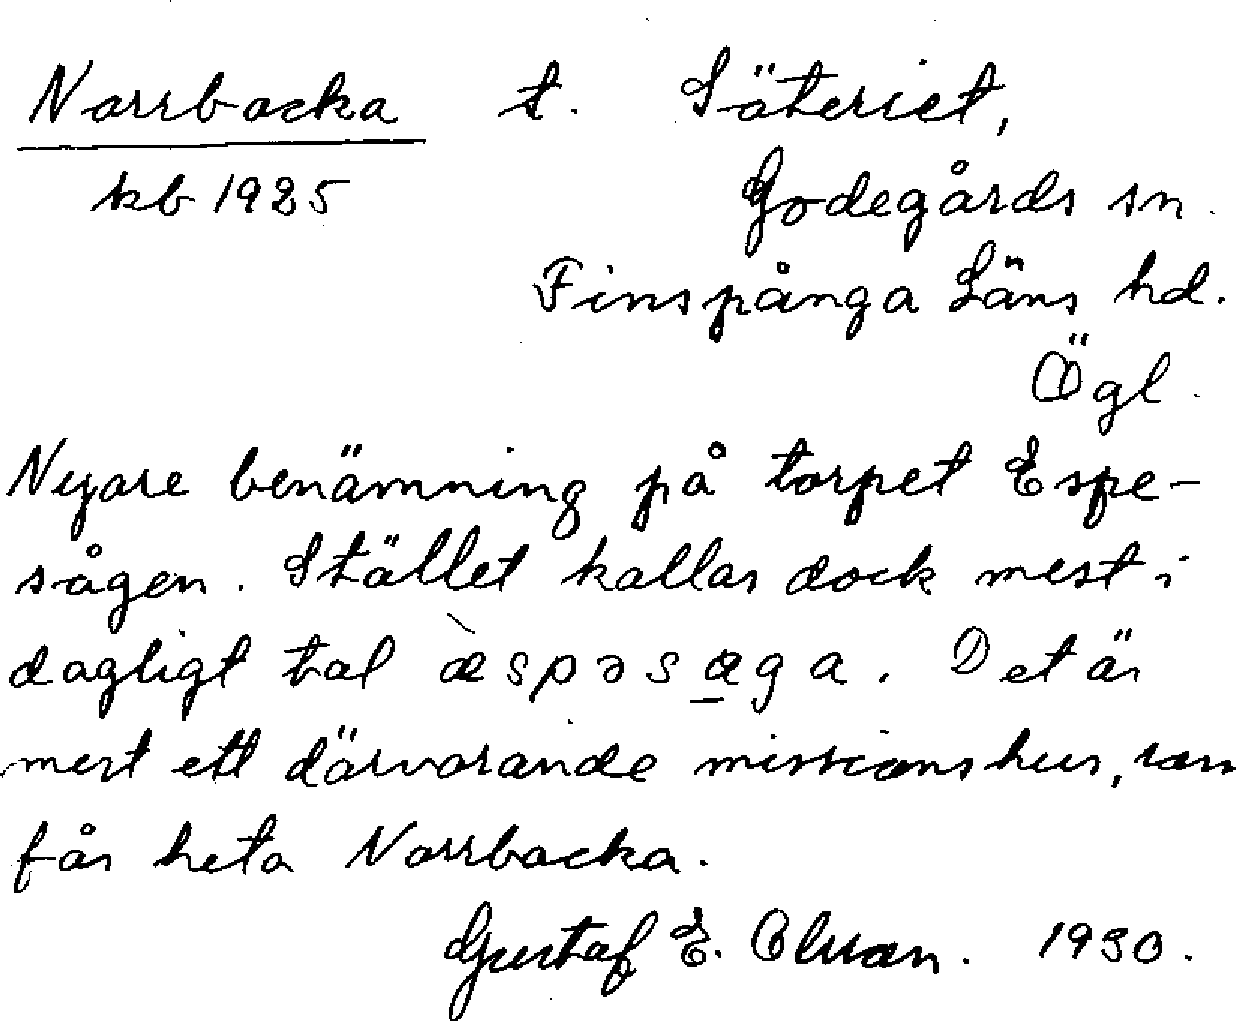 Norrbacka t. Säteriet,
kb 1925 Godegårds sn.
Finspånga Läns hd.
Ögl.
Nyare benämning på torpet Espe-
sågen. Stället kallas dock mest i
dagligt tal æ̀spəsaga. Det är
mest ett därvarande missionshus, som
får heta Norrbacka.
Gustaf E. Olsson. 1930.